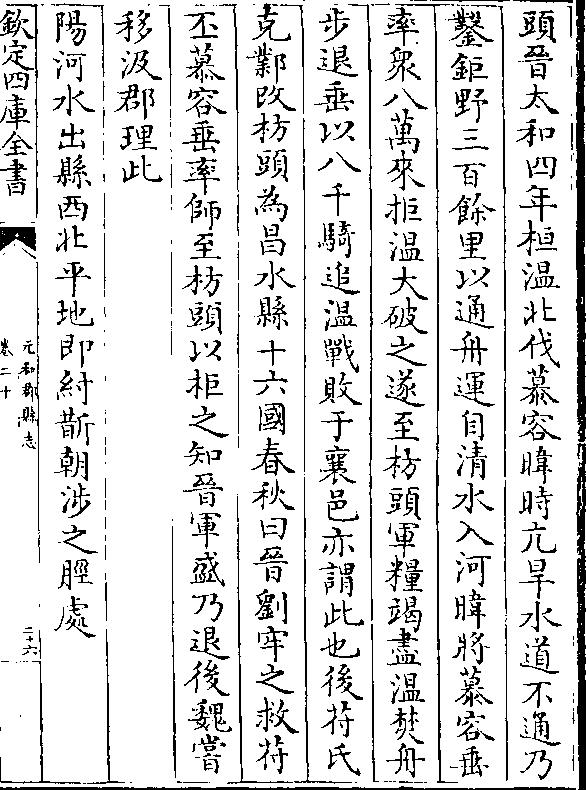 頭晉太和四年桓温北伐慕容暐時亢旱水道不通乃
鑿鉅野三百餘里以通舟運自清水入河暐將慕容垂
率衆八萬來拒温大破之遂至枋頭軍糧竭盡温焚舟
步退垂以八千騎追温戰敗于襄邑亦謂此也後苻氏
克鄴改枋頭為昌水縣十六國春秋曰晉劉牢之救苻
丕慕容垂率師至枋頭以柜之知晉軍盛乃退後魏嘗
移汲郡理此
陽河水出縣西北平地即紂斮朝涉之脛處
欽定四庫全書
元和郡縣志
卷二十
二十六